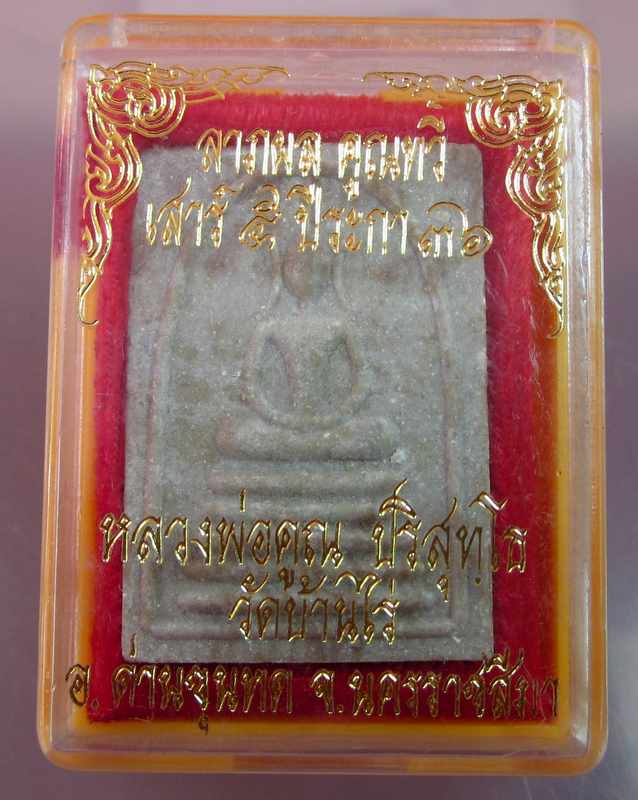 ลาภผล คูณทวี
เสาร์ ๕ ปีระกา ๓๖
หลวงพ่อคูณ ปริสุทฺโธ
วัดบ้านไร่
อ.ด่านขุนทด จ.นครราชสีมา